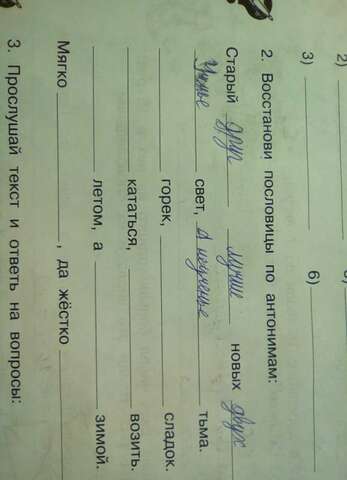 2)
3)
6)
2. Восстанови пословицы по антонимам:
Старый друг лучше новых двух
Ученье свет, а неученье тьма.
горек, сладок.
кататься, возить.
летом, а зимой.
Мягко , да жёстко
3. Прослушай текст и ответь на вопросы: